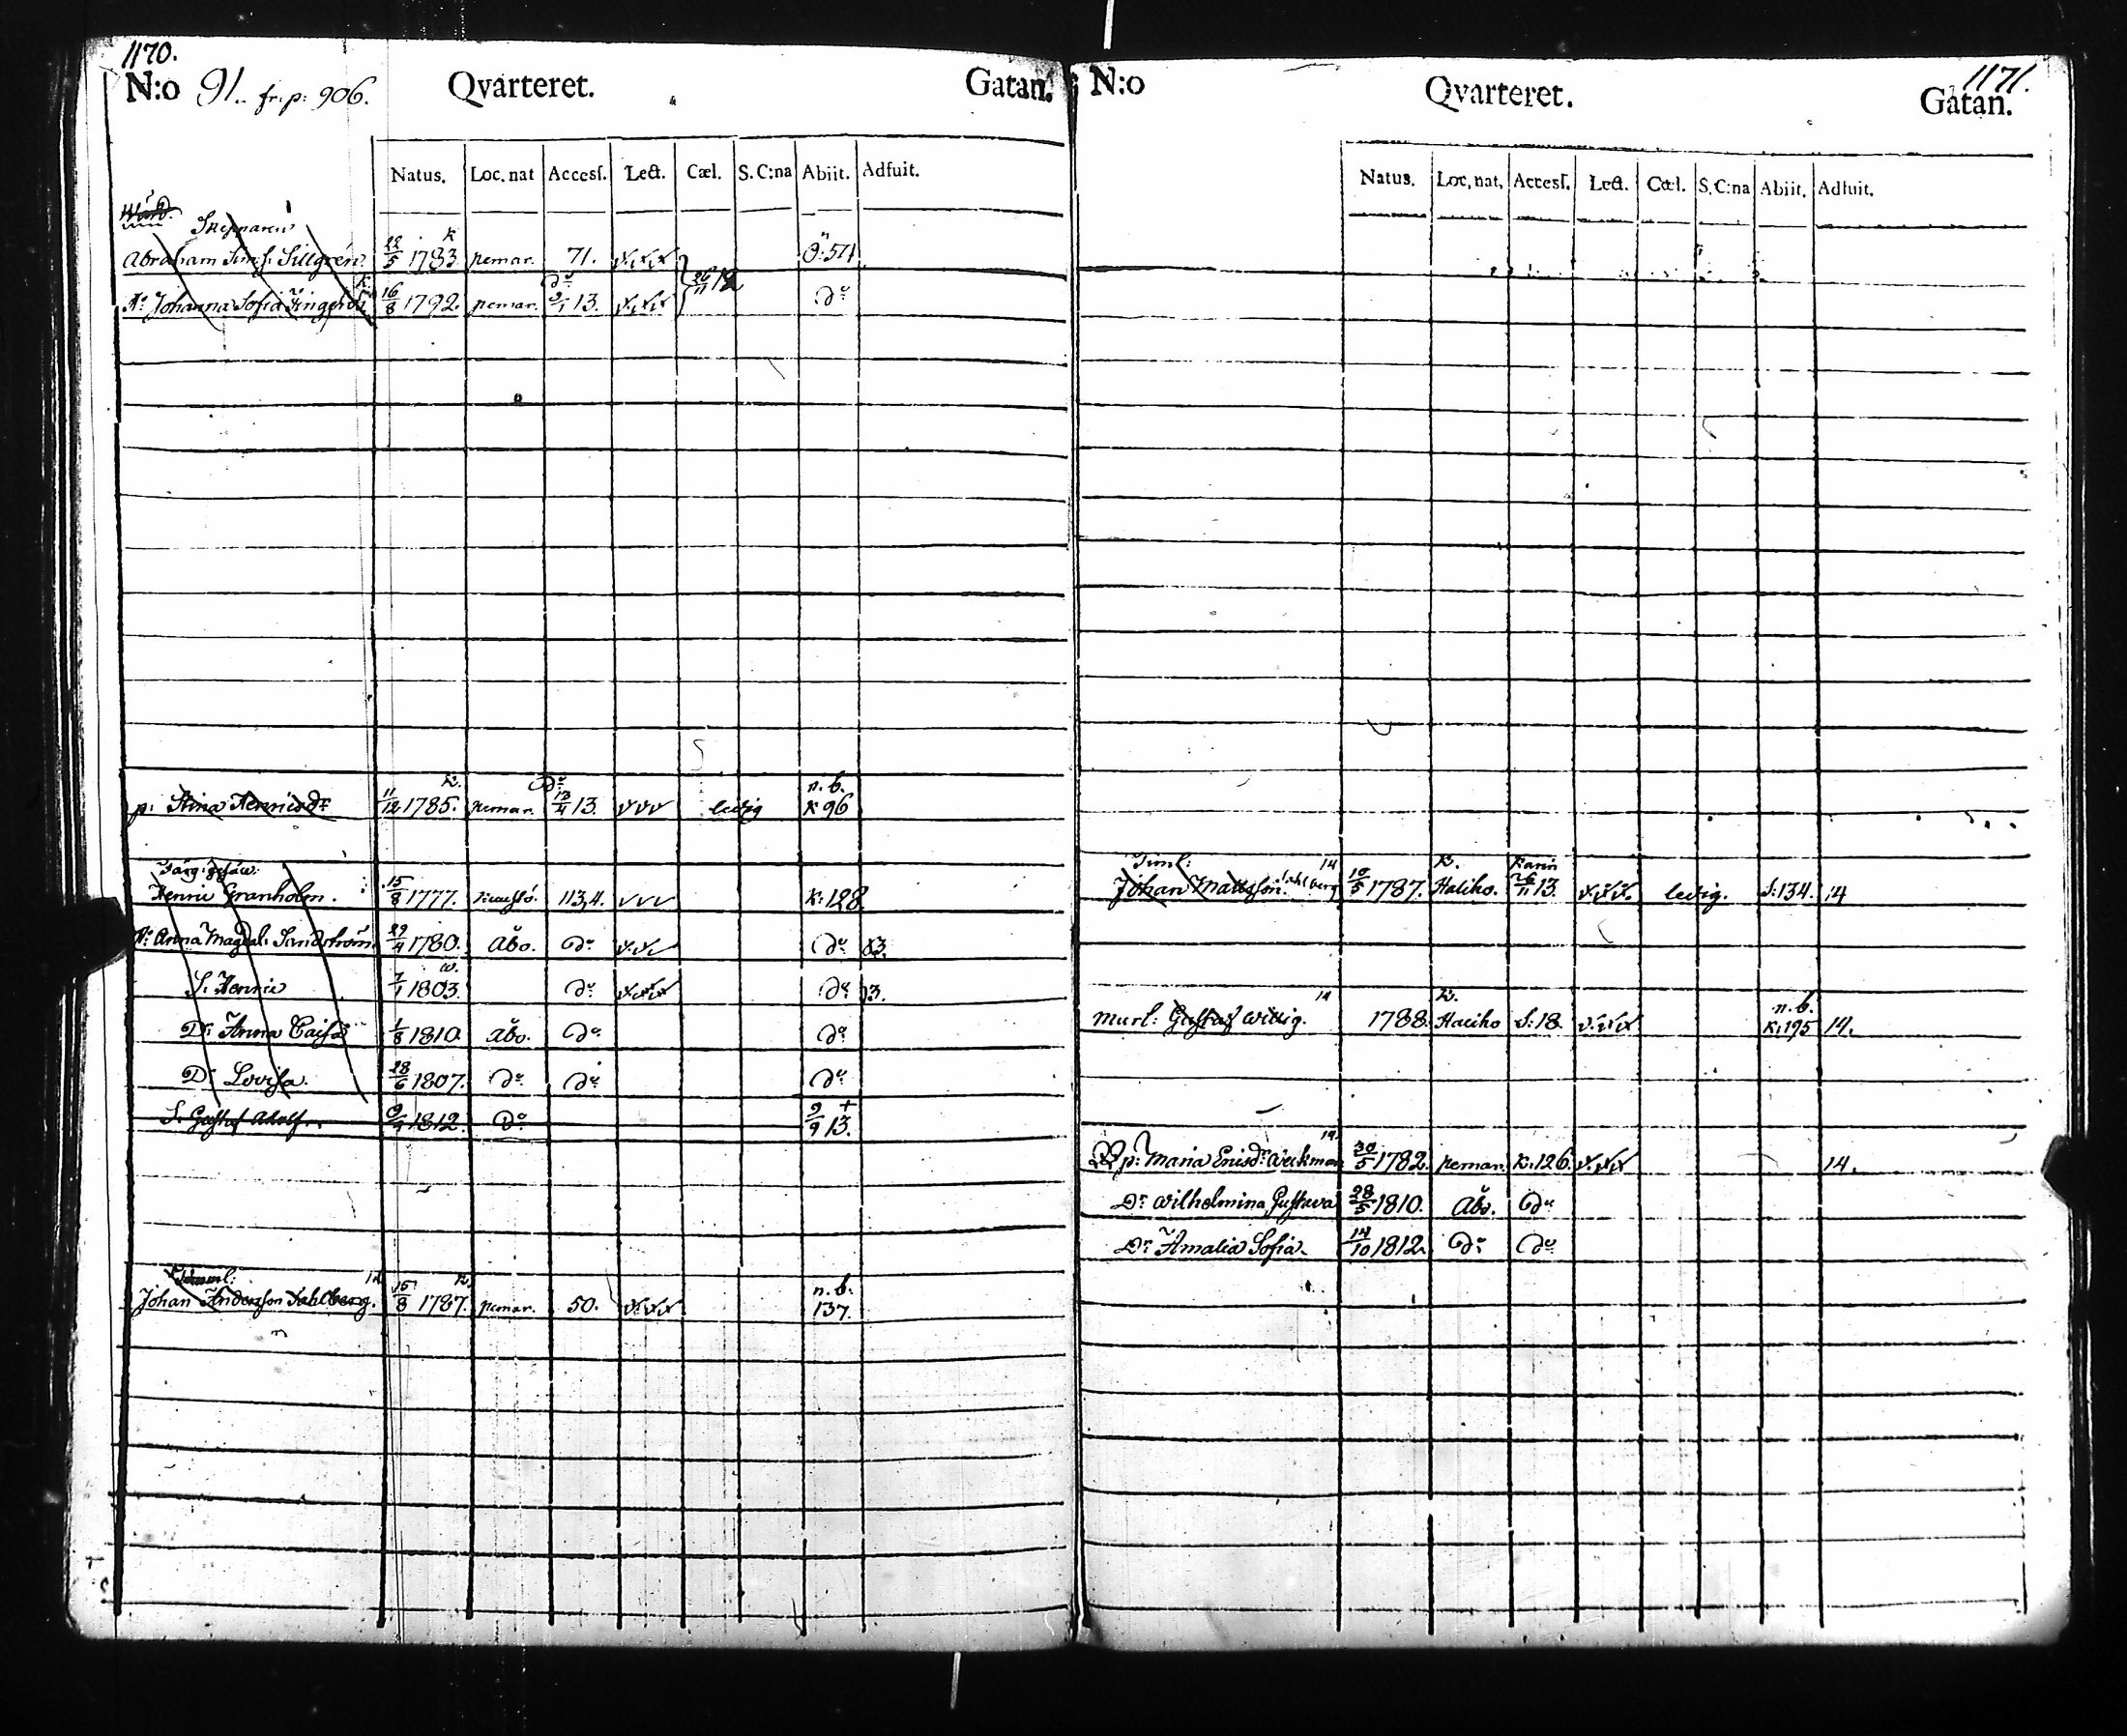 1170.
N:o 91. fr. p: 906. Qvarteret. Gatan.
Natus. Loc. nat Accesſ. Lect. Cœl. S. C:na Abiit. Adfuit.
Skepparen
k
Abraham Simſ: Sillgrén. 22/5 1783. pemar. 71. O: 511
do
H: Johanna Sofia 16/8 1792. pemar. 9/1 13. do
k. do n. b.
p: Stina Henricsdr 11/12 1785. pemar. 13. ledig k 96
Henric Granholm. 15/8 1777. 113,4. k: 128
H: Anna Magdal: Sundström 29/4 1780. Åbo. do do 13.
S. Henric 7/1 1803. do do 13.
Dr Anna Caisa 1/8 1810. Åbo. do do
Dr Lovisa. 28/6 1807. do do do
S. Gustaf Adolf. 1812. do 9/9 13. +
k n. b.
Johan Andersson Dahlberg. 15/8 1787. pemar. 50. 137.
1171.
N:o Qvarteret. Gatan.
Natus. Loc. nat. Accesſ. Lect. Cœl. S. C:na Abiit. Adfuit.
Timl: 14 k. Karin
Johan Mattsson Dahlberg 10/5 1787. Haliko. 26/11 13. ledig. S: 134. 14
14 k. n. b.
Murl: Gustaf Wittig. 1788. Haliko S: 18. k: 195 14.
14.
p: Maria Ericsdr Weckman 30/5 1782. pemar. k: 126. 14.
Dr Wilhelmina Gustava 28/5 1810. Åbo. do
Dr Amalia Sofia. 14/10 1812. do do